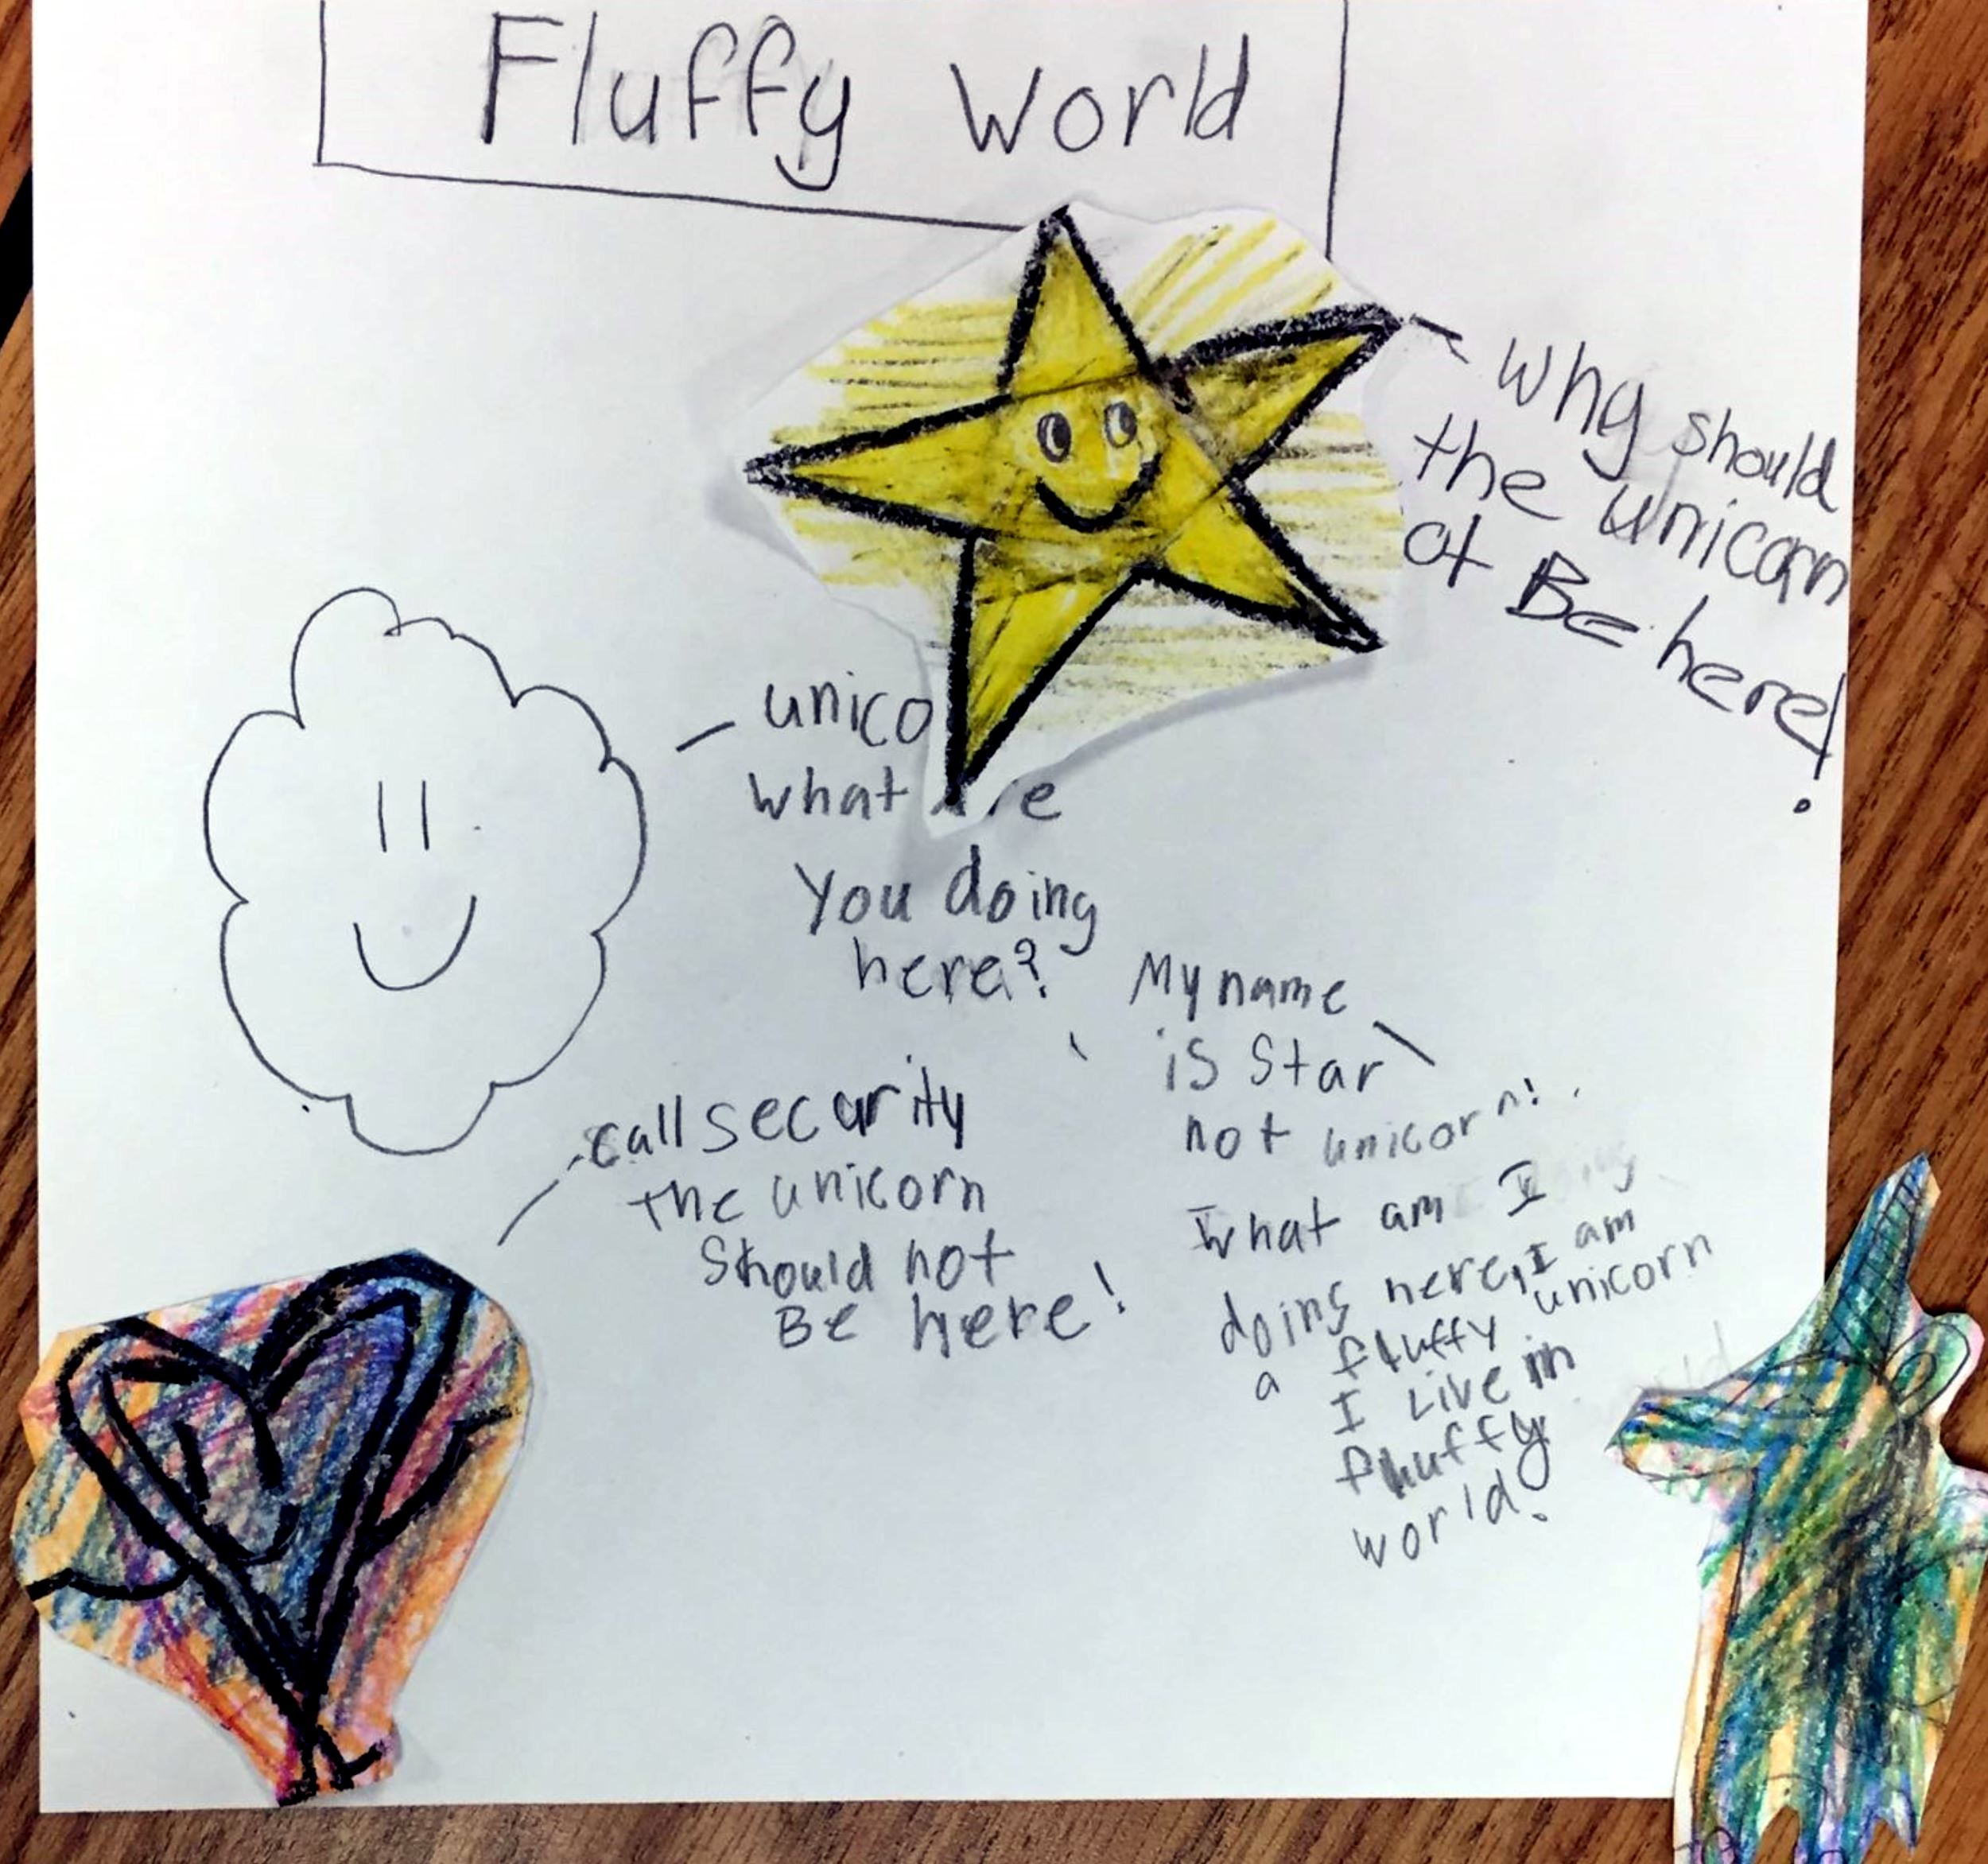 Fluffy World
Why should
the unicorn
ot Be here!
unico
what are
You doing
here?
My name
is Star
not unicorn!
call security
the unicorn
Should not
Be here!
What am I
doing here, I am
a fluffy unicorn
I Live in
fluffy
world.